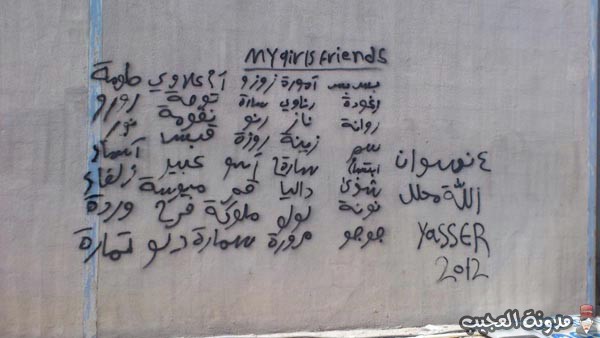 MY girls Friends
بسبس آمورة زوزو آ؟علاوي طومة
رغودة رناوي سارة تومة رورو
روانة ناز رنو نغومة نور
سمر زينة روزة قبس آسماء
ابتسام سارقا آسو عبير زلفاء
شذى داليا قمر ميوسة
نونة لولو ملوكة فرح وردة
جوجو مرورة سمارة دلو تمارة
٤ نسوان
الله محلل
YASSER
2012
مدونة العجيب